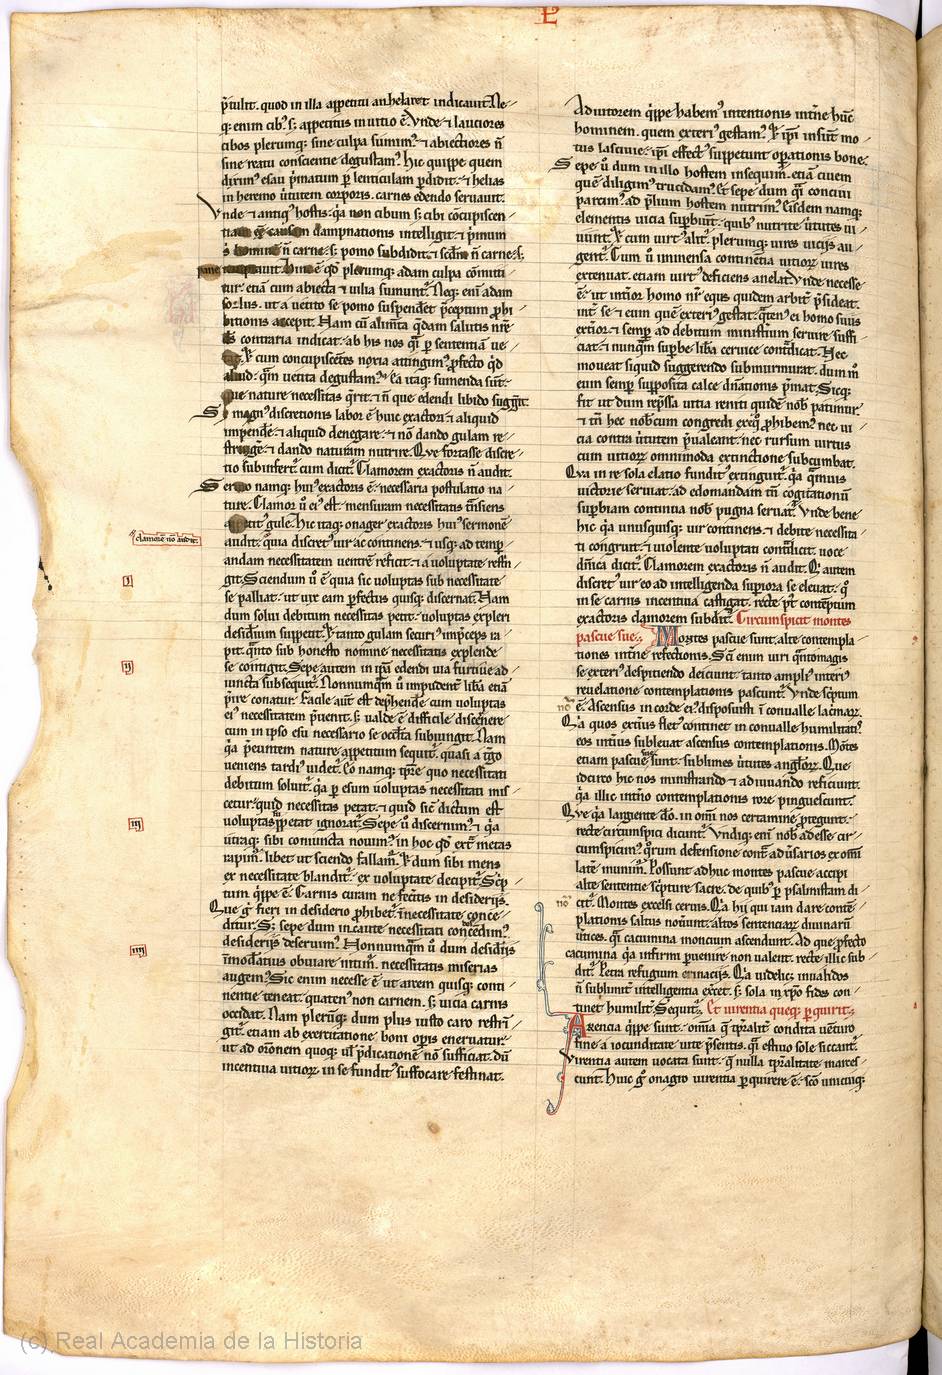 L
p̄tulit. quod in illa appetitu anhelaret indicauit. Ne-
q; enim cib᷒ s; appetitus in uitio ē. Vnde ⁊ lauciores
cibos plerumq; sine culpa sumim᷒. ⁊ abiectiores ñ
sine reatu conscientie degustam᷒. Hic quippe quem
dixim᷒ esau p̄matum ꝑ lenticulam ꝑdidit. ⁊ helias
in heremo ũtutem corporis. carnes edendo seruauit.
Vnde ⁊ antiq᷒ hostis. q̇a non cibum s; cibi cōcupiscen-
dampnationis intelligit. ⁊ p̄mum
ñ carne. s; pomo subdidit. ⁊ sc̄dm̄ ñ carne. s;
pane ē qđ plerumq; adam culpa cōmitti-
tur. etiā cum abiecta ⁊ uilia sumunt᷒. Neq; eni᷒ adam
solus. ut a uetito se pomo suspenderet p̄ceptum ꝓhi-
bitionis accepit. Nam cū alim̄ta q̄dam salutis nr̄e
contraria indicat. ab his nos q̇i ꝑ sententiā ue-
cum concupiscētes noxia attingim᷒ ꝓfecto q̇d
aliud. q̄m uetita degustam᷒. Ea itaq; sumenda sūt.
que nature necessitas q̄rit. ⁊ ñ que edendi libido suggerit.
S; magn᷒ discretionis labor ē huic exactori ⁊ aliquid
impendere. ⁊ aliquid denegare. ⁊ nō dando gulam re-
stringere. ⁊ dando naturam nutrire. Que fortasse discre-
tio subinfert᷒ cum dicit᷒. Clamorem exactoris ñ audit.
Sermo namq; hui᷒ exactoris ē. necessaria postulatio na-
ture. Clamor ũ ei᷒ est mensuram necessitatis t̄nsiens
gule. Hic itaq; onager exactoris hui᷒ sermonē
audit. q̇a discret᷒ uir ac continens. ⁊ usq; ad temp̄-
andam necessitatem uentrē reficit. ⁊ a uoluptate refri-
git. Sciendum ũ ē quia sic uoluptas sub necessitate
se palliat. ut uix eam ꝑfectus quisq; discernat. Nam
dum solui debitum necessitas petit. uoluptas expleri
desiderium suppetit. ⁊ tanto gulam securi᷒ in p̄ceps ra-
pit. q̄nto sub honesto nomine necessitatis explende
se contigit. Sepe autem in ip̄a edendi uia furtiue ad-
iuncta subsequit᷒. Nonnumq̄m ũ impudent᷒ libā etiā
p̄ire conatur. Facile aut̄ est dep̄hendē cum uoluptas
ei᷒ necessitatem p̄uenit. s; ualde ē difficile discernere
cum in ipso esu necessario se occl̄ta subiungit. Nam
q̇a p̄euntem nature appetitum sequit᷒. quasi a t̄go
ueniens tardi᷒ uidet᷒. Eo namq; tp̄re quo necessitati
debitum soluit᷒. q̇a ꝑ esum uoluptas necessitati mis-
cetur. quid necessitas petat. ⁊ quid sic̄ dictum est
uoluptas suppetat ignorat᷒. Sepe ũ discernim᷒. ⁊ q̇a
utraq; sibi coniuncta nouim᷒. in hoc qđ ext̄ metas
rapim᷒. libet ut sciendo fallam᷒. ⁊ dum sibi mens
ex necessitate blandit᷒. ex uoluptate decipit᷒. Sc̄p-
tum q̄ppe ē. Carnis curam ne feceritis in desiderijs.
Que g̊ fieri in desiderio ꝓhibet᷒. in necessitate conce-
ditur. S; sepe dum incaute necessitati condescendim᷒.
desiderijs deseruim᷒. Nonnumq̄m ũ dum desiderijs
īmoderatius obuiare nitim᷒. necessitatis miserias
augem᷒. Sic enim necesse ē ut arcem quisq; conti-
nentie teneat. quaten᷒ non carnem. s; uicia carnis
occidat. Nam pler̄uq; dum plus iusto caro restrī-
git᷒. etiam ab exercitatione boni opis eneruatur.
ut ad or̄onem quoq; ul̄ p̄dicationē nō sufficiat. dū
incentiua uitiorꝝ in se fundit᷒ suffocare festinat.
clamorē nō audit.
i
ij
iij
iiij
Adiutorem q̄ppe habem᷒ intentionis int̄ne hūc
hominem. quem exteri᷒ gestam᷒. ⁊ ip̄i insunt mo-
tus lasciuie. ip̄i effect᷒ suppetunt oꝑationis bone.
Sepe ũ dum in illo hostem insequim᷒. etiā ciuem
quē diligim᷒ trucidam᷒. Et sepe dum q̇i conciui
parcim᷒. ad p̄lium hostem nutrim᷒. Eisdem namq;
elementis uicia suꝑbiunt. quib᷒ nutrite ũtutes ui-
uunt. ⁊ cum uirt᷒ alit᷒. plerumq; uires uicijs au-
gent᷒. Cum ũ immensa continētia uitiorꝝ uires
extenuat. etiam uirt᷒ deficiens anelat. Vnde necesse
ē. ut int̄ior homo nr̄ equs quidem arbit̄ p̄sideat.
int̄ se ⁊ eum quē exteri᷒ gestat. q̄ten᷒ ei homo suus
exterior ⁊ semꝑ ad debitum minist̄ium seruire suffi-
ciat. ⁊ nunq̄m suꝑbe libā ceruice cont̄dicat. Nec
moueat siquid suggerendo submurmurat. dum m̊
eum semꝑ supposita calce dn̄ationis p̄mat. Sicq;
fit ut dum rep̄ssa uitia reniti quidē nob᷒ patimur
⁊ tn̄ hec nob᷒cum congredi exeq̊ ꝓhibem᷒. nec ui-
cia contra ũtutem p̄ualeant. nec rursum uirtus
cum uitiorꝝ omnimoda extinctione subcumbat.
Qua in re sola elatio fundit᷒ extinguit᷒. q̇a q̄muis
uictorie seruiat. ad edomandam tn̄ cogitationū
suꝑbiam continua nob᷒ pugna seruat᷒. Vnde bene
hic q̇a unusquisq; uir continens. ⁊ debite necessita-
ti congruit. ⁊ uiolente uoluptati cont̄dicit. uoce
dn̄ica dicit᷒. Clamorem exactoris ñ audit. Q̇ autem
discret᷒ uir eo ad intelligenda supiora se eleuat. q̊
in se carnis incentiua castigat. recte p̄t contēptum
exactoris clamorem subdit᷒. Circumspicit montes
pascue sue. Montes pascue sunt. alte contempla-
tiones int̄ne refectionis. Sc̄i enim uiri q̄ntomagis
se exteri᷒ despiciendo deiciunt. tanto ampli᷒ interi᷒
reuelatione contemplationis pascunt᷒. Vnde sc̄ptum
no ē. Ascensus in corde ei᷒ disposuisti ī conualle lacrimarꝝ.
Q̇a quos exterius flet᷒ continet in conualle humilitatis
eos intius subleuat ascensus contemplationis. Mōtes
etiam pascue sunt. sublimes ũtutes angelorꝝ. Que
idcirco hic nos ministrando ⁊ adiuuando reficiunt.
q̇a illic int̄no contemplationis rore pinguescunt.
Que q̇a largiente dō. in om̄i nos certamine ꝓtegunt.
recte circumspici dicunt᷒. Vndiq; eni᷒ nob᷒ adesse cir-
cumspicim᷒. q̊rum defensione cont̄ adũsarios ex om̄i
lat̄e munim᷒. Possunt adhuc montes pascue accipi
alte sententie sc̄pture sacre. de quib᷒ ꝑ psalmistam di-
no cit᷒. Montes excelsi ceruis. Q̇a hij qui iam dare contē-
plationis saltus nouerunt. altos sententiarꝝ diuinarū
uertices. q̇i cacumina moncium ascendunt. Ad que ꝓfecto
cacumina q̇a infirmi ꝑuenire non ualent. recte illic sub-
dit᷒. Petra refugium erinacijs. Q̇a uidelic; inualidos
ñ sublimit᷒ intelligentia exercet. s; sola in xp̄o fides con-
tinet humilit᷒. Sequit᷒. Et uirentia queq; ꝑquirit.
Arencia q̄ppe sunt. omīa q̄ tp̄ralit᷒ condita uent̄o
fine a iocunditate uite p̄sentis. q̇i estiuo sole siccant᷒.
Virentia autem uocata sunt. q̄ nulla tp̄ralitate marces-
cunt. Huic g̊ onagro uirentia ꝑquirere ē. sc̄o unicuiq;
(c) Real Academia de la Historia